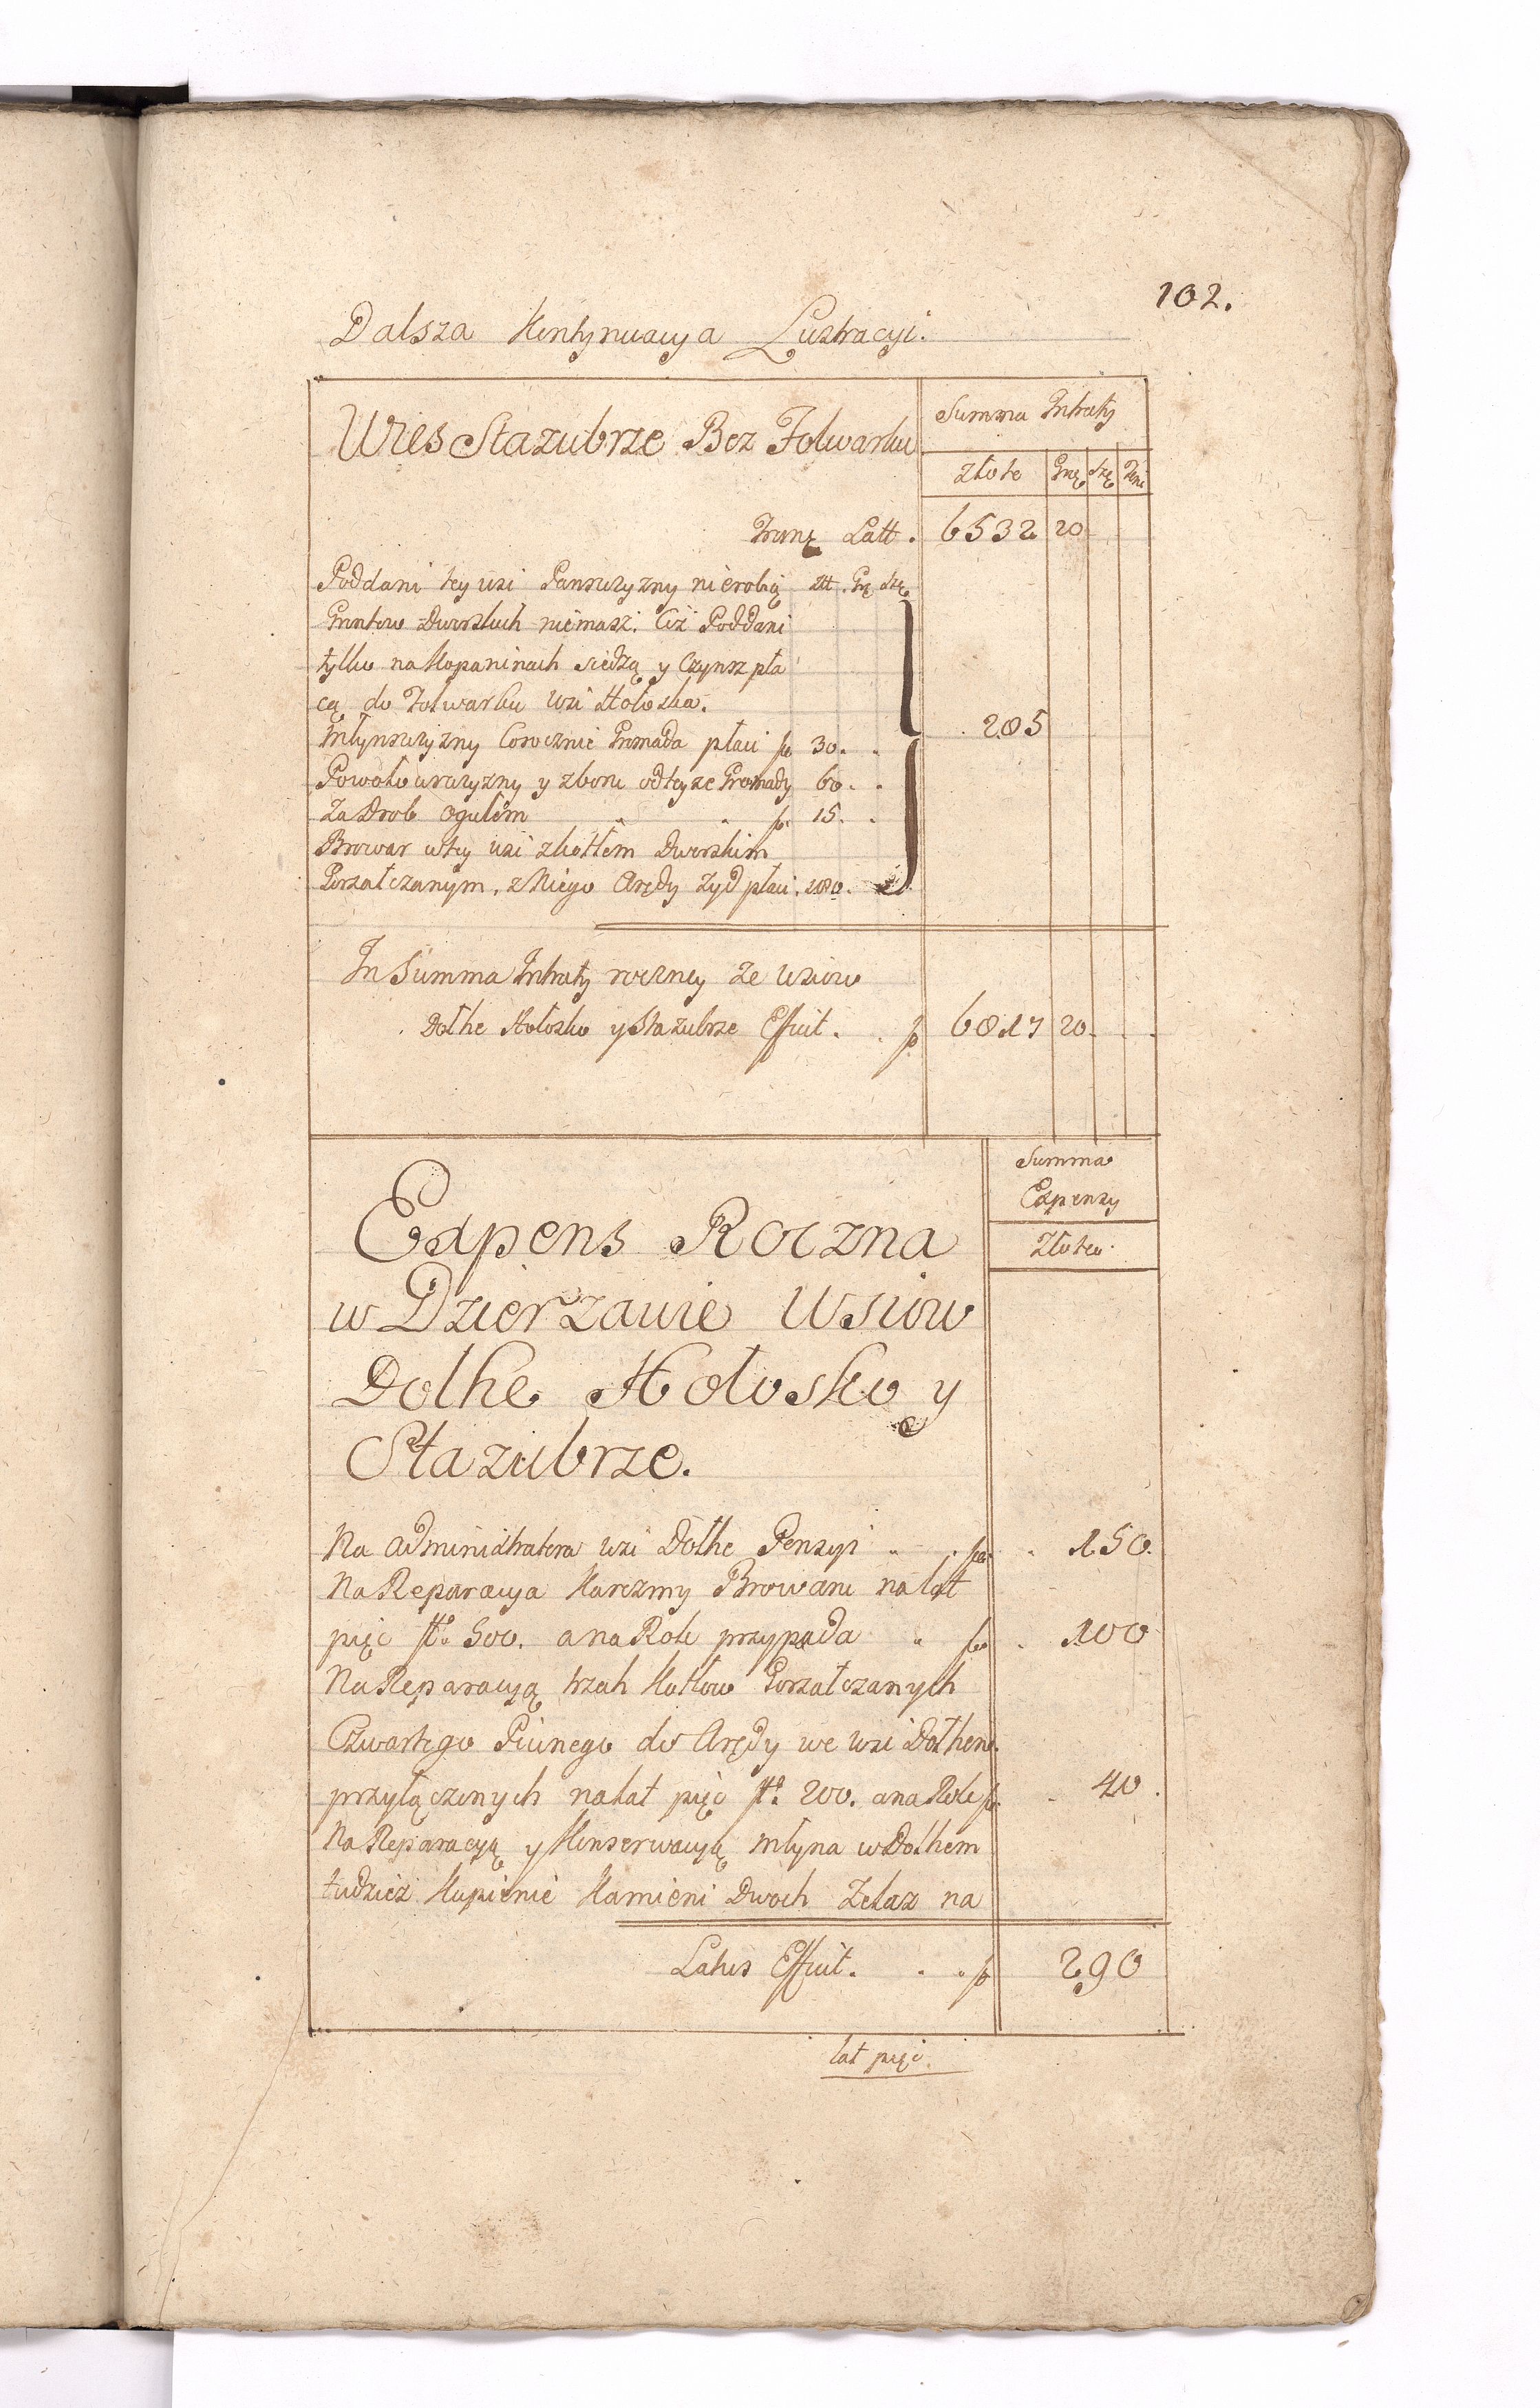 102.
Dalsza Kontynuacya Lustracyi.
Wies Stazubrze Bez Folwarku
Summa Intraty
Złote Grz Szę
Latt. 6532 20
Poddani tey wsi Panszczyzny nierobią Zł. Gr. Szę
Gruntow Dworskich niemasz. Ciż Poddani
tylko na Kopaninach siedzą y Czynsz pła
cą do Folwarku wsi Hołoska.
Młynszczyzny Corocznie Gromada płaci 30.
285
Powołowszczyzny y zboru od teyze Gromady 60.
Za Drob ogułem 15.
Browar w tey wsi z kotłem Dworskim
Gorzałczanym, z Niego Arędy Zyd płaci. 180.
In Summa Intraty roczney ze Wsiow
Dołhe Hołosko y Stazubrze Efficit. 6817 20.
Summa
Expensy
Złote
Expens Roczna
w Dzierzawie Wsiow
Dolhe Hołosko y
Stazubrze.
Na administratora wsi Dołhe Pensyi 150.
Na Reparacya Karczmy Browaru na lat
pięc 500. a na Rok przypada 100
Na Reparacyą trzah Kotłow Gorzałczanych
Czwartego Piwnego do Arędy we wsi Dołhem
przyłączonych na lat pięc 200. a na Rok 40.
Na Reparacyą y Konserwacyą młyna w Dołhem
tudziez Kupienie Kamieni Dwoch Zelaz na
Latus Efficit. 290
lat pięc.